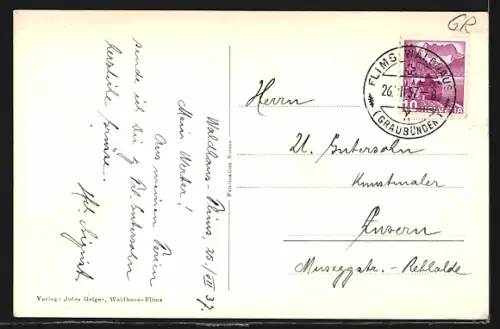 GR
FLIMS-WALDHAUS
26. VII 37
(GRAUBÜNDEN)
10 HELVETIA
Herrn
U. Gutersohn
Kunstmaler
Luzern
Museggstr. - Rebhalde
Waldhaus-Flims, 25./VII 37.
Mein Werter!
Aus meinen Ferien
sende ich Dir & Fr. Gutersohn
herzliche Grüsse.
Verlag: Jules Geiger, Waldhaus-Flims